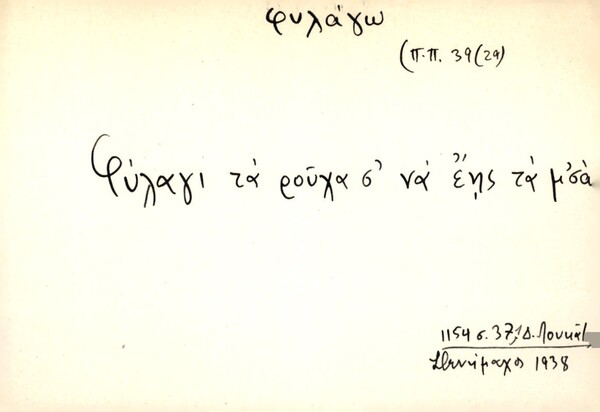 φυλάγω
(Π.Π. 39(29)
Φύλαγι τά ροῦχα σ' νά ἔης τά μ'σὰ
1154 σ. 37, Δ. Λουκᾶτ
Στενήμαχος 1938